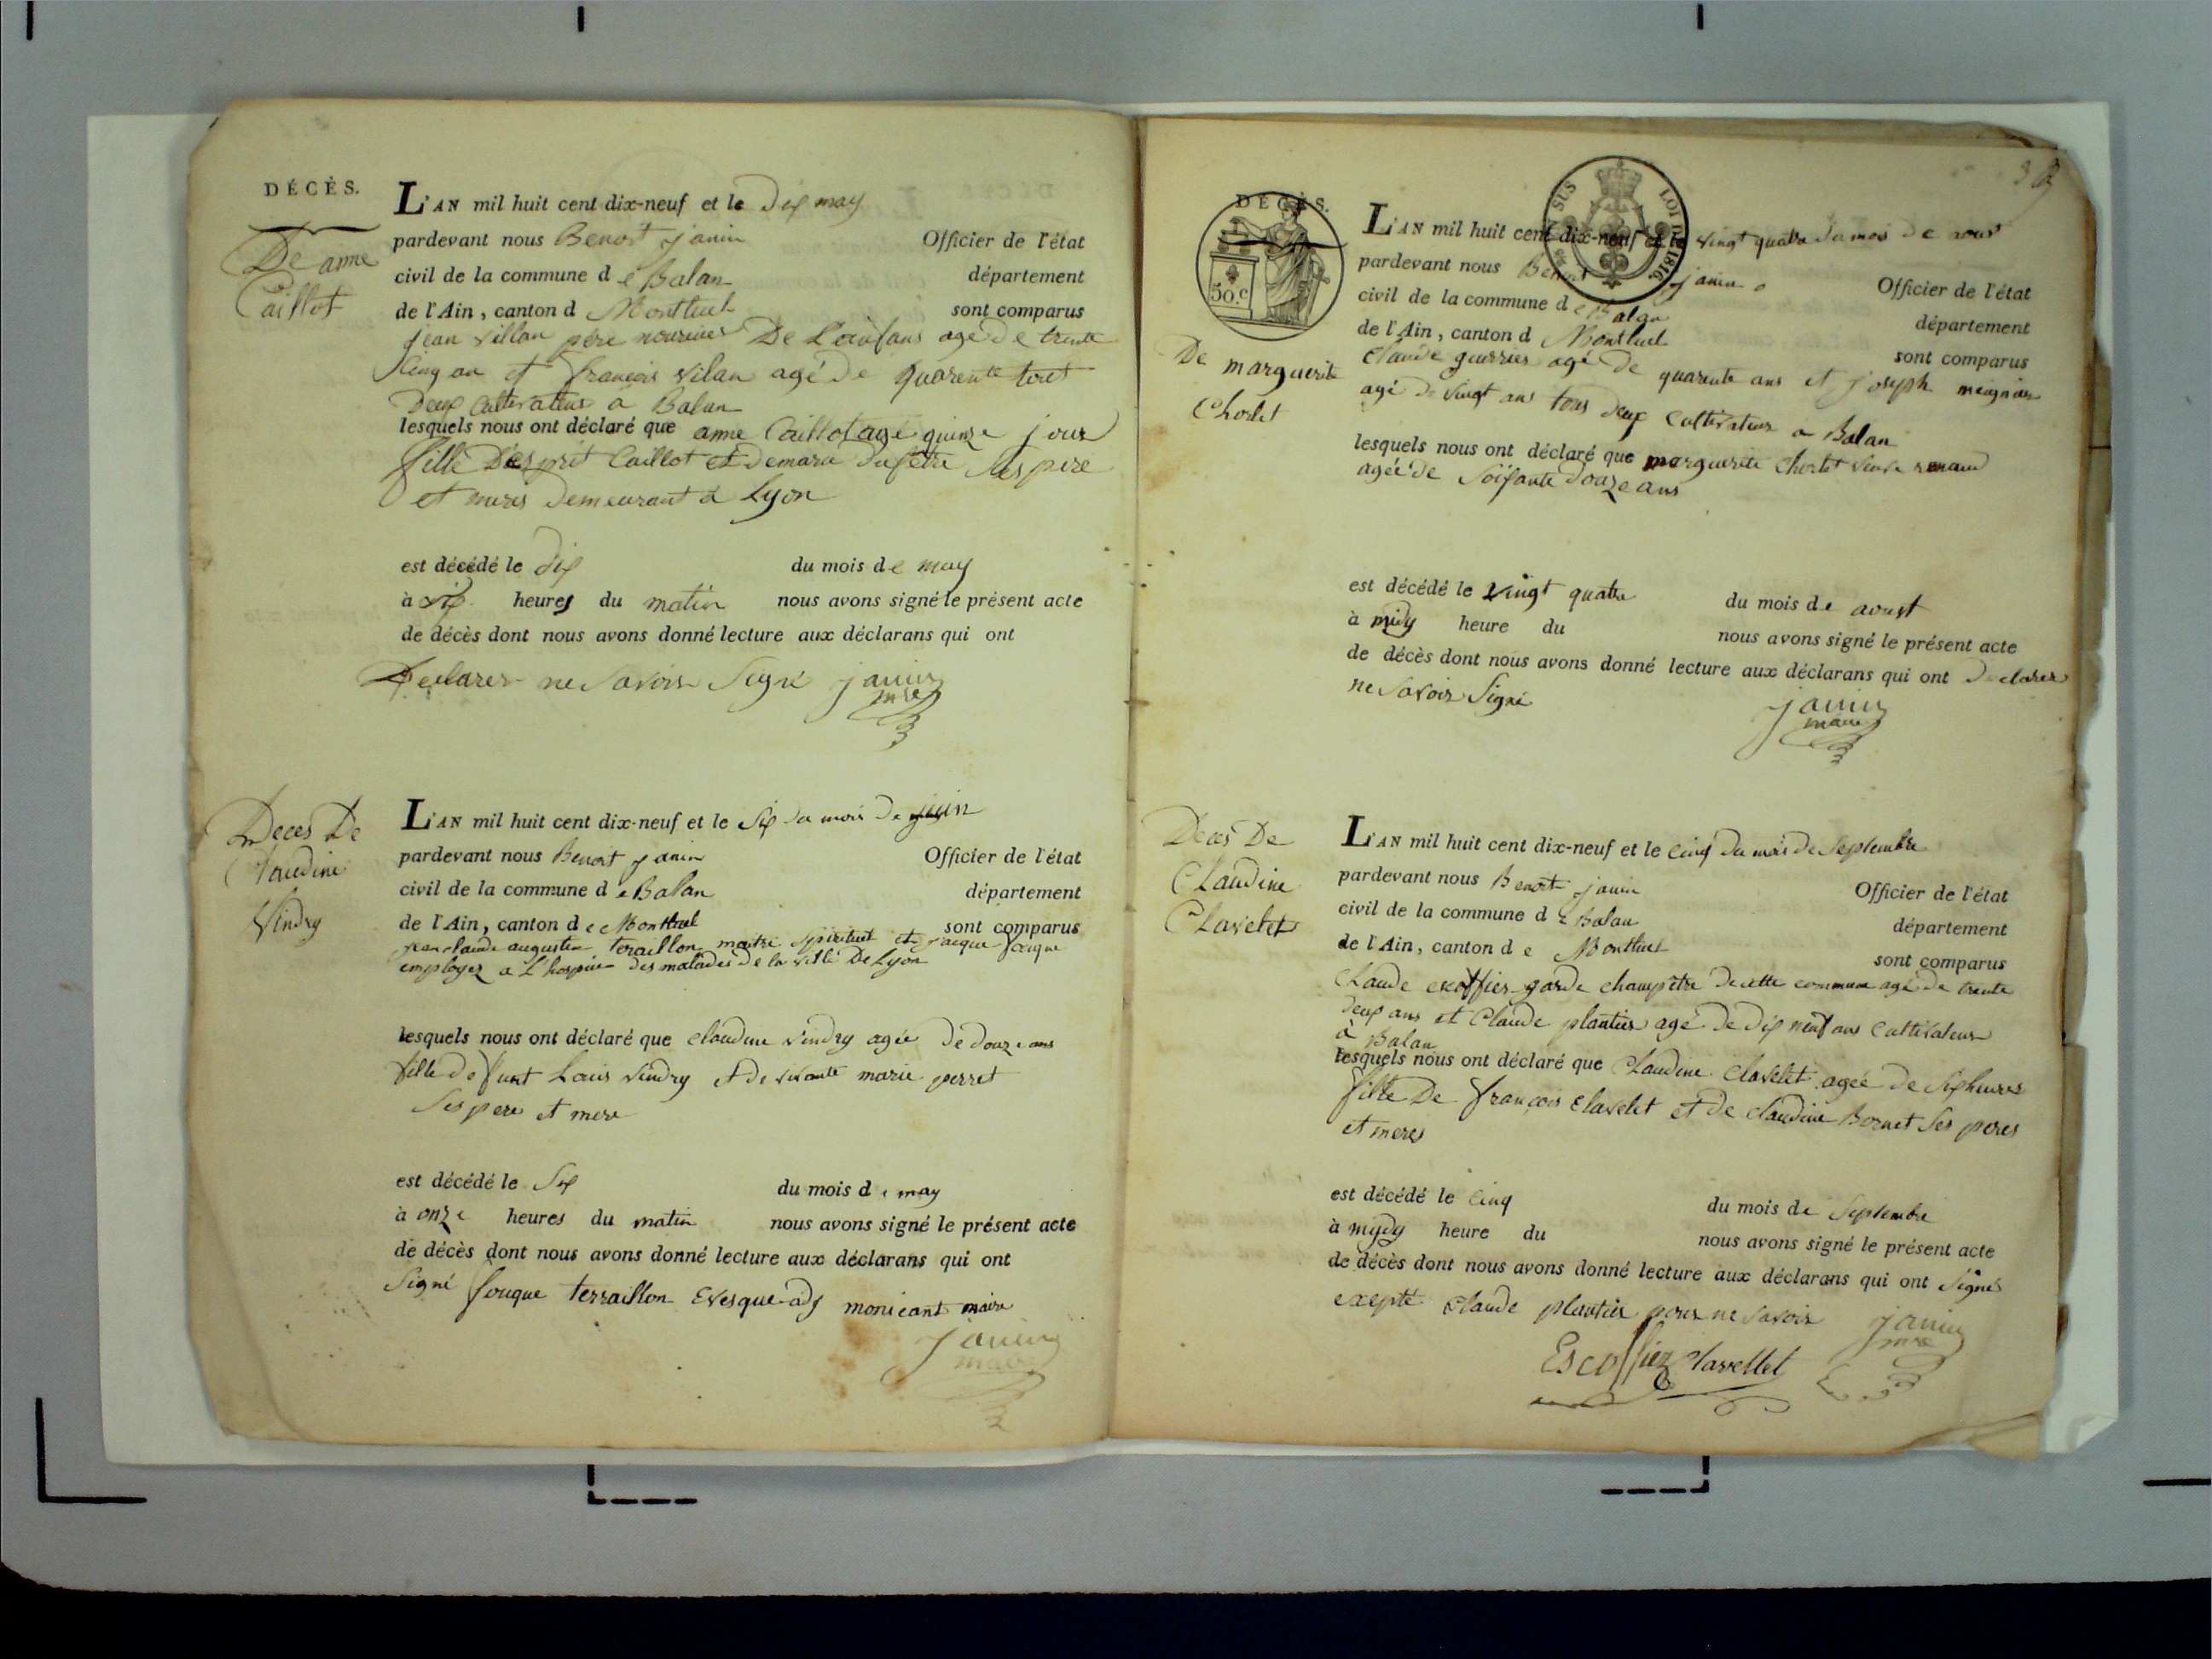 DÉCÈS.
De anne
Caillot
L'AN mil huit cent dix-neuf et le Dix may
pardevant nous Benoit janin Officier de l'état
civil de la commune de Balan département
de l'Ain, canton d Montluel sont comparus
jean villan père De agé de trente
Cinq an et françois vilan agé de quarente
Deux Cultivateur a Balan
lesquels nous ont déclaré que anne Caillot agé quinze jour
fille D'esprit Caillot et
et meres demeurant à Lyon
est décédé le dix du mois de may
à six heures du matin nous avons signé le présent acte
de décès dont nous avons donné lecture aux déclarans qui ont
Declarer ne savoir Signé janin
mre
Deces De
Claudine
Vindry
L'AN mil huit cent dix-neuf et le Six du mois de juin
pardevant nous Benoit janin Officier de l'état
civil de la commune de Balan département
de l'Ain, canton de Montluel sont comparus
jean claude augustin teraillon maitre spirituel et jacque
employez a L'hospice des malades de la ville De Lyon
lesquels nous ont déclaré que claudine vindry agée de douze ans
fille defunt Louis vindry et de vivante marie perret
Ses pere et mere
est décédé le Six du mois de may
à onze heures du matin nous avons signé le présent acte
de décès dont nous avons donné lecture aux déclarans qui ont
Signé fouque terraillon Evesque adj monicant maire
janin
maire
DÉCÈS.
50.c
LOI DE 1816.
De marguerite
Chorlet
L'AN mil huit cent dix-neuf et le vingt quatre du mois de aoust
pardevant nous Benoit janin Officier de l'état
civil de la commune de Balan département
de l'Ain, canton d Montluel sont comparus
Claude guerrier agé de quarente ans et joseph
agé de vingt ans tous deux Cultivateur a Balan
lesquels nous ont déclaré que marguerite Chorlet veuve renaud
agée de soixante douze ans
est décédé le vingt quatre du mois de aoust
à midy heure du nous avons signé le présent acte
de décès dont nous avons donné lecture aux déclarans qui ont declarer
ne savoir Signé
janin
maire
Deces De
Claudine
Clavelet
L'AN mil huit cent dix-neuf et le cinq du mois de Septembre
pardevant nous Benoit janin Officier de l'état
civil de la commune de Balan département
de l'Ain, canton de Montluel sont comparus
Claude garde champêtre de cette commune agé de trente
deux ans et Claude plantier agé de dix neuf ans Cultivateur
à Balan
lesquels nous ont déclaré que Claudine Clavelet agée de Six heures
fille De françois Clavelet et de claudine Bornet Ses peres
et meres
est décédé le cinq du mois de Septembre
à mydy heure du nous avons signé le présent acte
de décès dont nous avons donné lecture aux déclarans qui ont Signés
exepté Claude plantier pour ne savoir janin
mre
Escoffier Clavellet